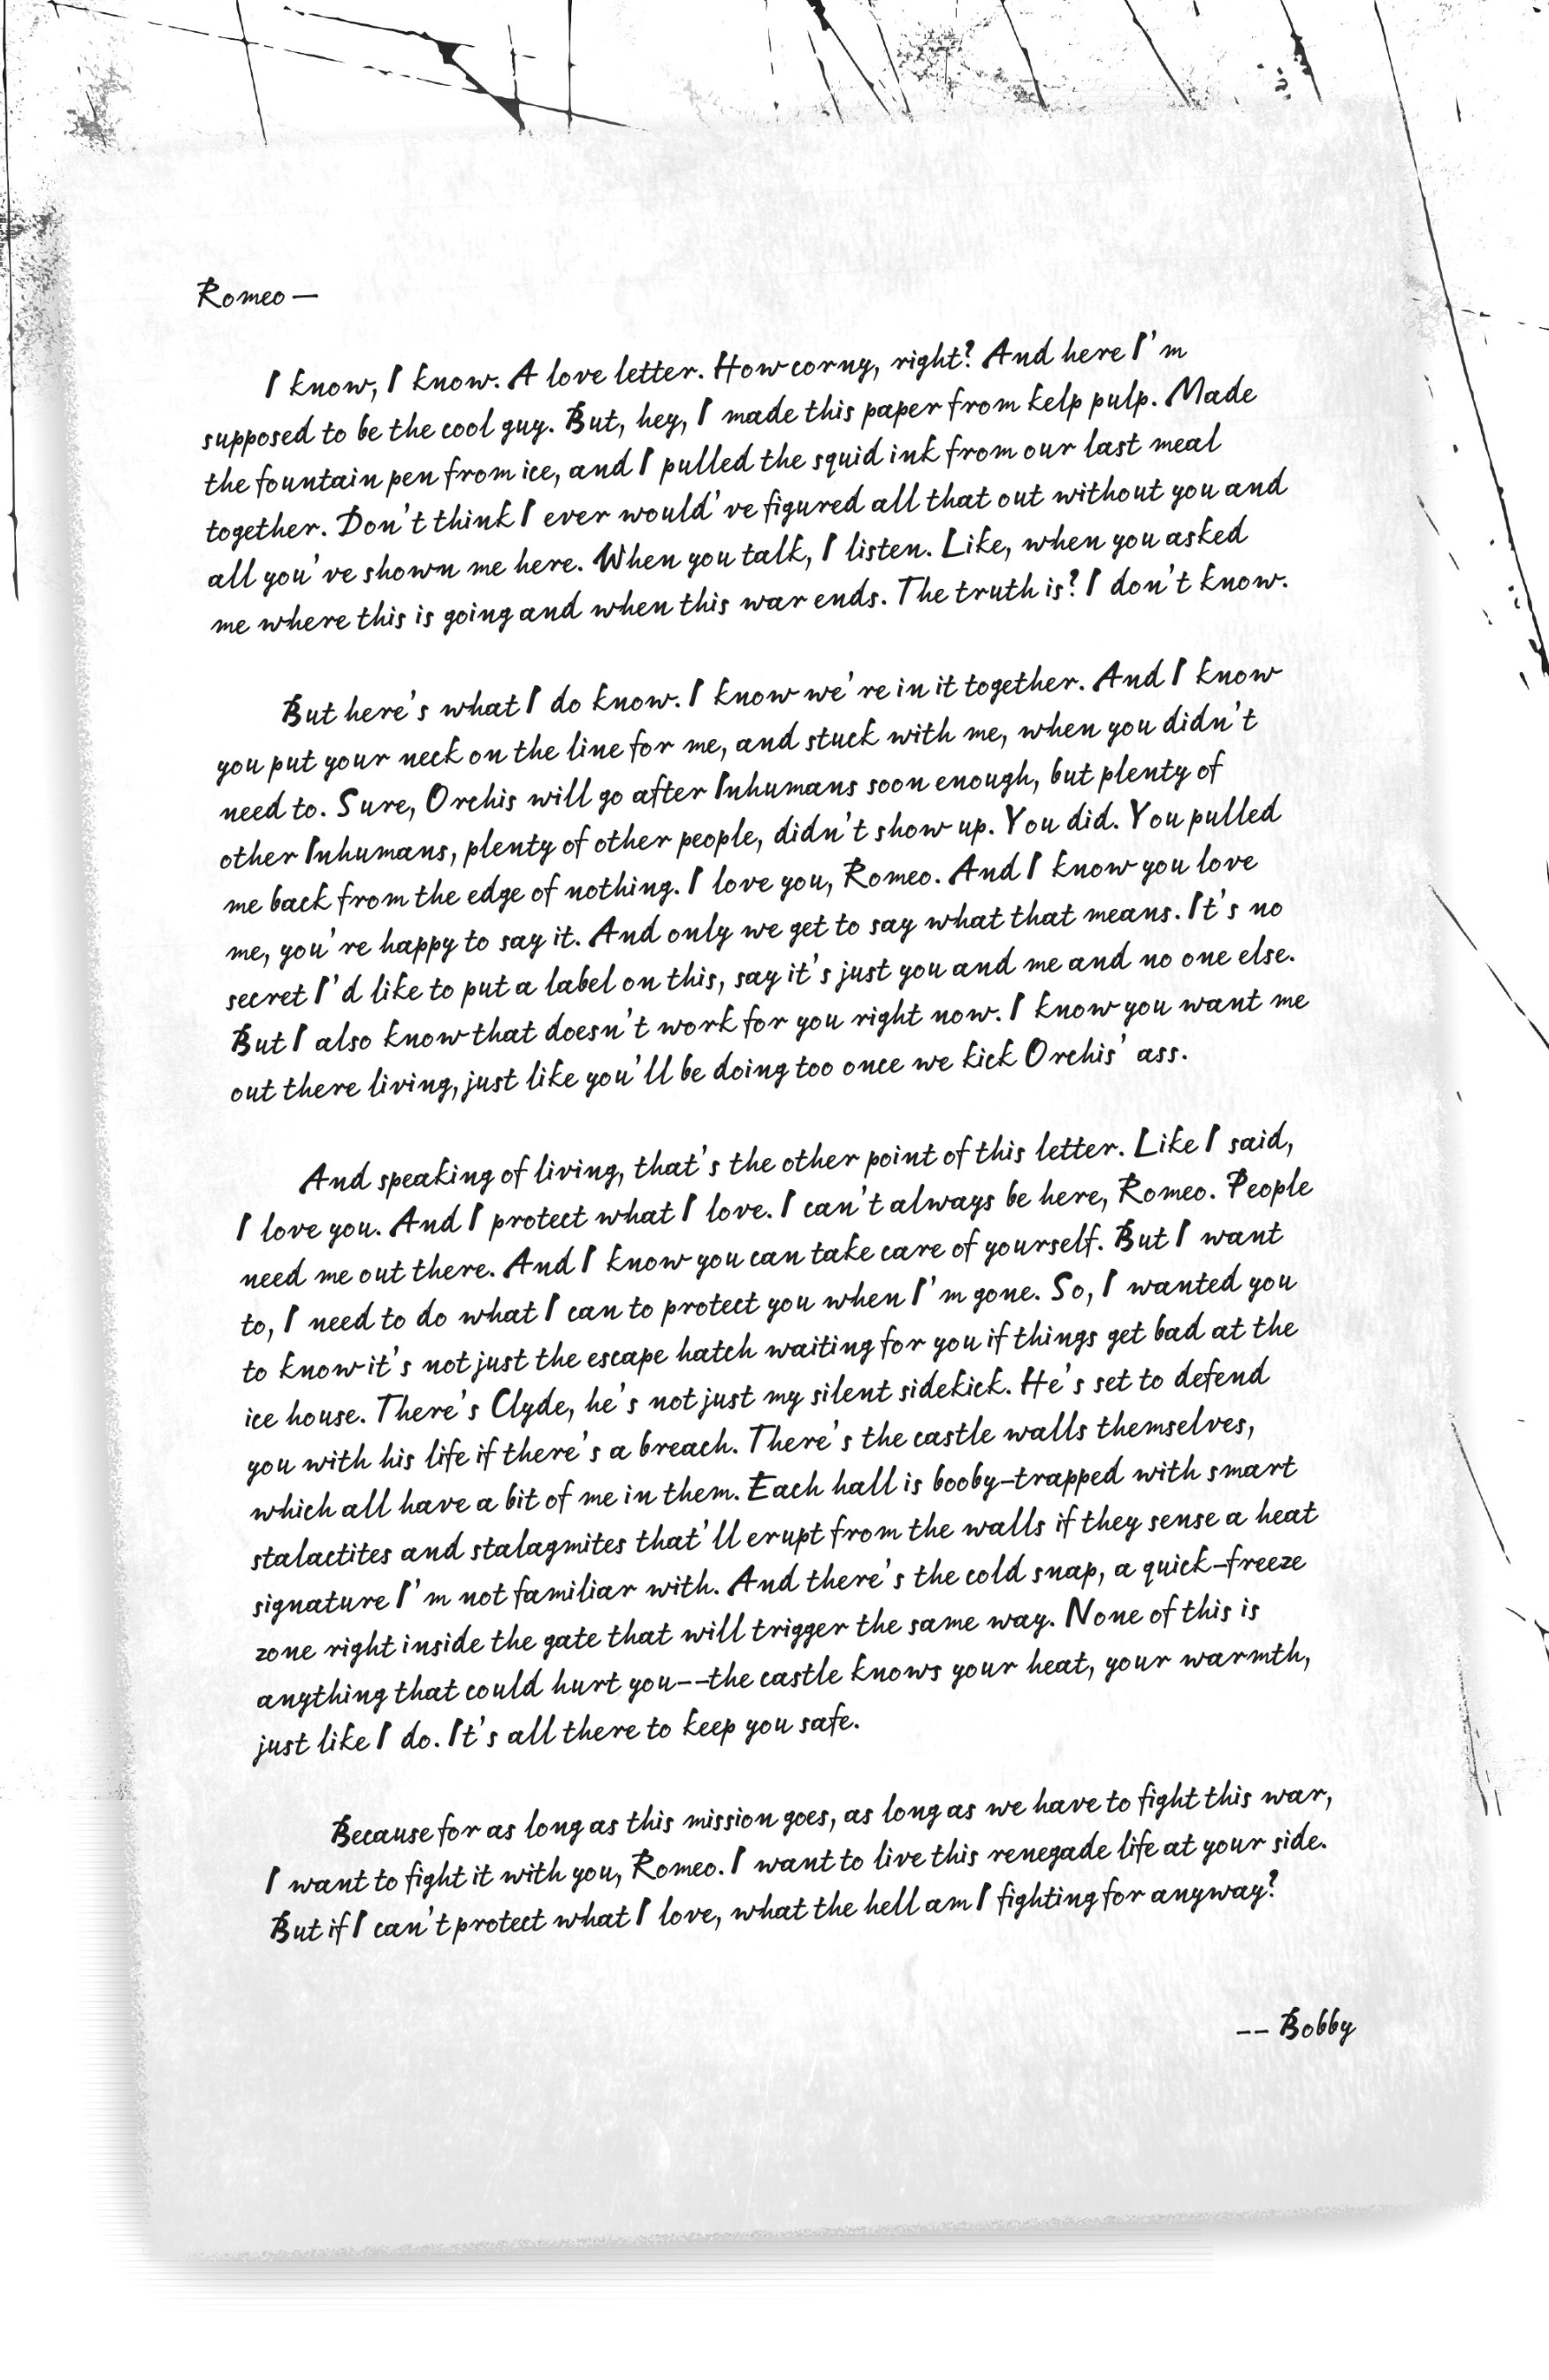 Romeo —
I know, I know. A love letter. How corny, right? And here I'm
supposed to be the cool guy. But, hey, I made this paper from kelp pulp. Made
the fountain pen from ice, and I pulled the squid ink from our last meal
together. Don't think I ever would've figured all that out without you and
all you've shown me here. When you talk, I listen. Like, when you asked
me where this is going and when this war ends. The truth is? I don't know.
But here's what I do know. I know we're in it together. And I know
you put your neck on the line for me, and stuck with me, when you didn't
need to. Sure, Orchis will go after Inhumans soon enough, but plenty of
other Inhumans, plenty of other people, didn't show up. You did. You pulled
me back from the edge of nothing. I love you, Romeo. And I know you love
me, you're happy to say it. And only we get to say what that means. It's no
secret I'd like to put a label on this, say it's just you and me and no one else.
But I also know that doesn't work for you right now. I know you want me
out there living, just like you'll be doing too once we kick Orchis' ass.
And speaking of living, that's the other point of this letter. Like I said,
I love you. And I protect what I love. I can't always be here, Romeo. People
need me out there. And I know you can take care of yourself. But I want
to, I need to do what I can to protect you when I'm gone. So, I wanted you
to know it's not just the escape hatch waiting for you if things get bad at the
ice house. There's Clyde, he's not just my silent sidekick. He's set to defend
you with his life if there's a breach. There's the castle walls themselves,
which all have a bit of me in them. Each hall is booby-trapped with smart
stalactites and stalagmites that'll erupt from the walls if they sense a heat
signature I'm not familiar with. And there's the cold snap, a quick-freeze
zone right inside the gate that will trigger the same way. None of this is
anything that could hurt you--the castle knows your heat, your warmth,
just like I do. It's all there to keep you safe.
Because for as long as this mission goes, as long as we have to fight this war,
I want to fight it with you, Romeo. I want to live this renegade life at your side.
But if I can't protect what I love, what the hell am I fighting for anyway?
-- Bobby